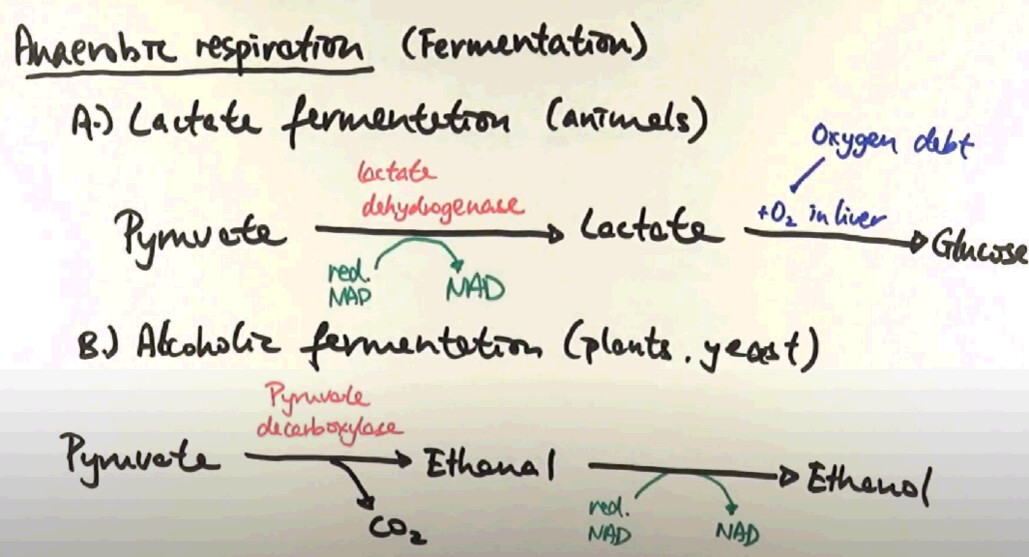 Anaerobic respiration (Fermentation)
A.) Lactate fermentation (animals)
Oxygen debt
lactate
dehydrogenase
Pyruvate
Lactate
+O₂ in liver
Glucose
red.
NAD
NAD
B.) Alcoholic fermentation (plants, yeast)
Pyruvate
decarboxylase
Pyruvate
Ethanal
Ethanol
CO₂
red.
NAD
NAD